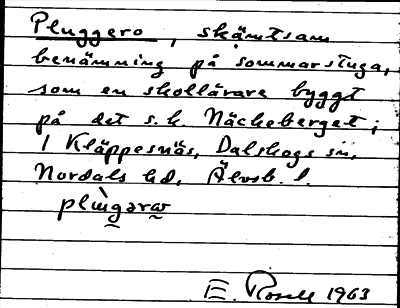 Pluggero, skämtsam
benämning på sommarstuga,
som en skollärare byggt
på det s.k. Näckeberget;
i Kläppesnäs, Dalskogs sn,
Nordals hd, Älvsb. l.
E. Rosell 1963